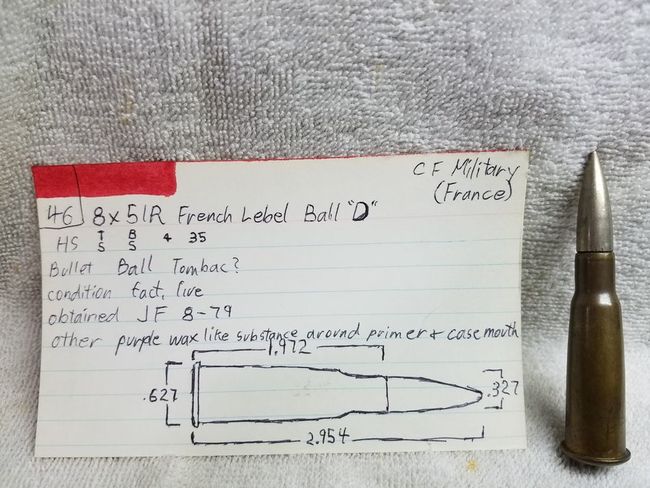 CF Military
(France)
46 8x51R French Lebel Ball "D"
HS T S B S 4 35
Bullet Ball Tombac?
condition fact, live
obtained JF 8-79
other purple wax like substance around primer & case mouth
1.972
.627
.327
2.954